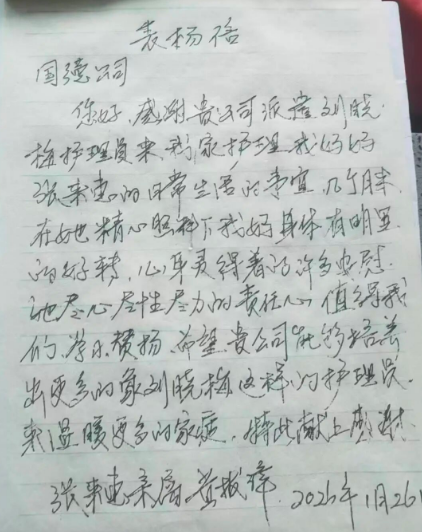 表扬信
国德公司
您好，感谢贵公司派遣刘晓
梅护理员来我家护理我妈妈
张来惠的日常生活的事宜，几个月来
在她精心照料下我妈身体有明显
的好转，心灵得着的许多安慰
她尽心尽性尽力的责任心值得我
们学习赞扬，希望贵公司能够培养
出更多的象刘晓梅这样的护理员
来温暖更多的家庭，特此献上感谢
张来惠亲属 2026年1月26